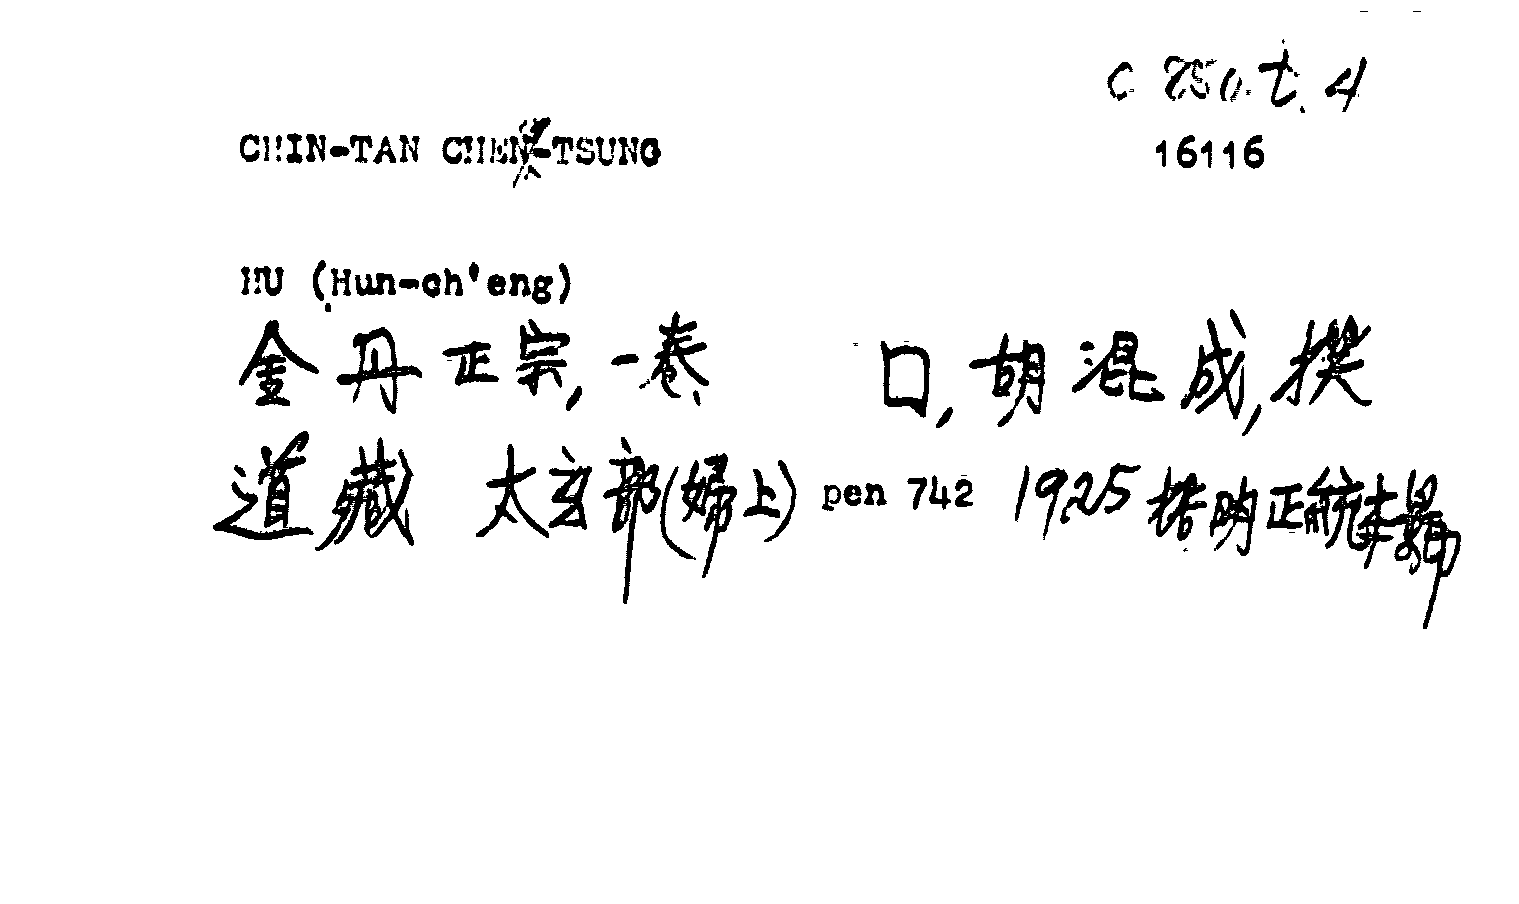 C 850.t.4
CHIN-TAN CHEN-TSUNG
16116
HU (Hun-ch'eng)
金丹正宗,一卷 口,胡混成,撰
道藏 太玄部(婦上) pen 742 1925 据明正統本影